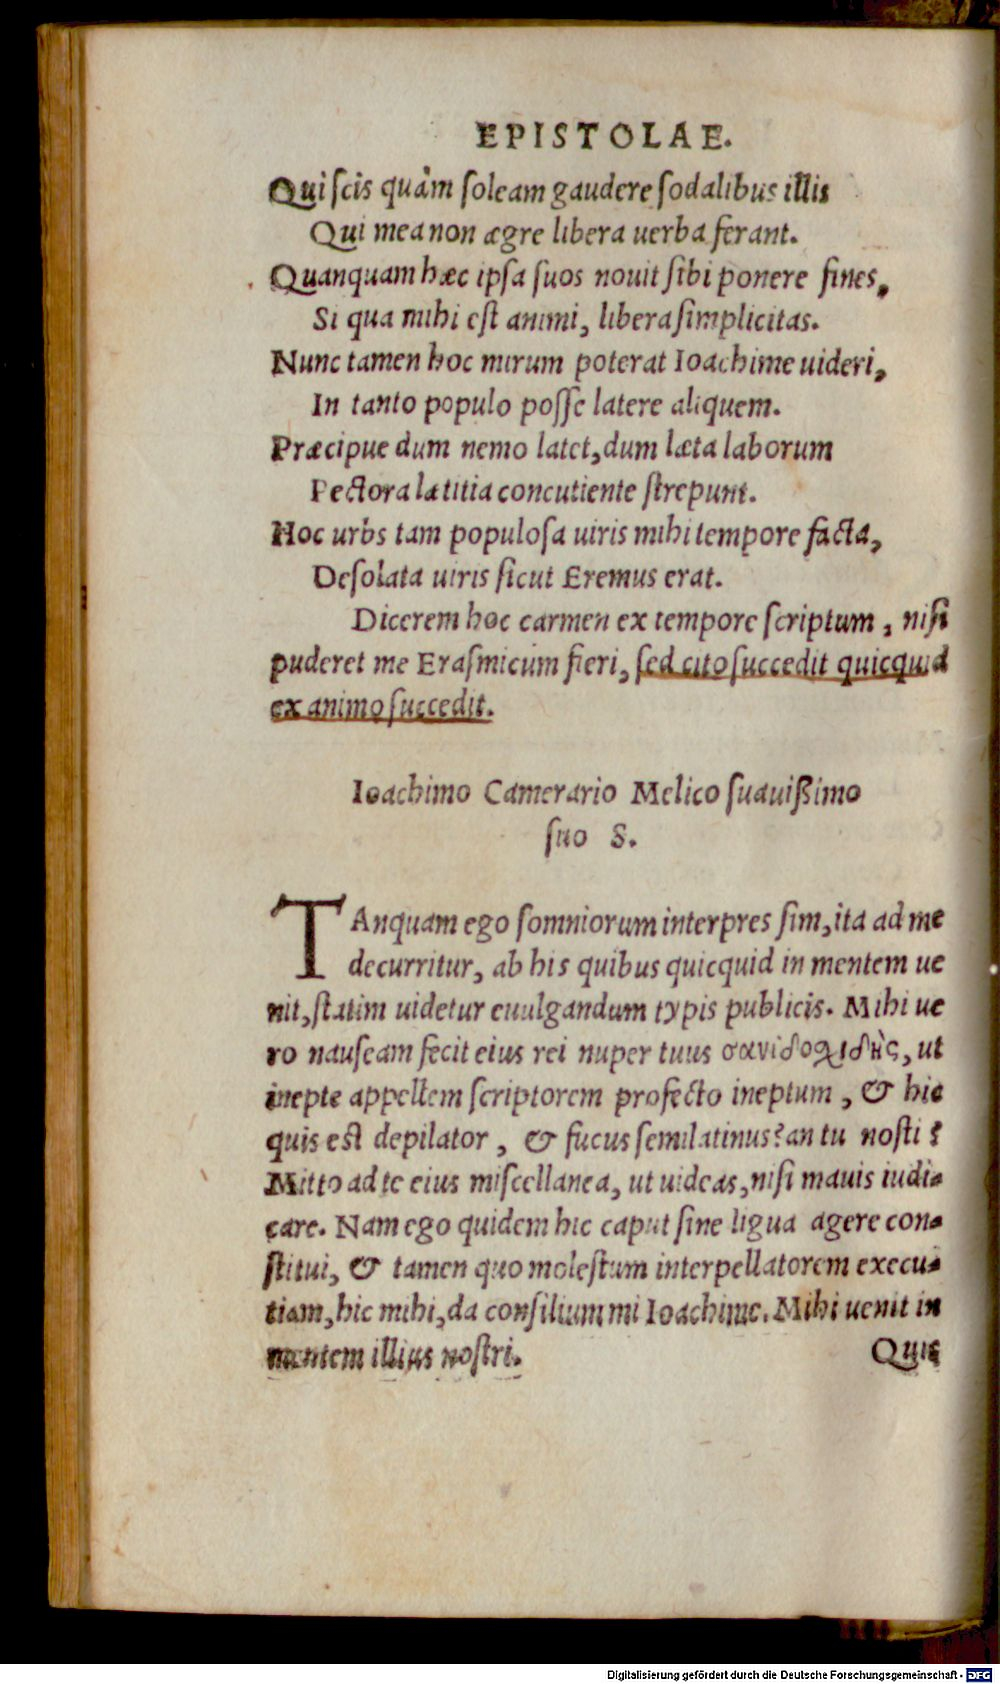 EPISTOLAE.
Qui scis quàm soleam gaudere sodalibus illis
Qui mea non ægre libera uerba ferant.
Quanquam hæc ipsa suos nouit sibi ponere fines,
Si qua mihi est animi, libera simplicitas.
Nunc tamen hoc mirum poterat Ioachime uideri,
In tanto populo posse latere aliquem.
Præcipue dum nemo latet, dum læta laborum
Pectora lætitia concutiente strepunt.
Hoc urbs tam populosa uiris mihi tempore facta,
Desolata uiris sicut Eremus erat.
Dicerem hoc carmen ex tempore scriptum, nisi
puderet me Erasmicum fieri, sed cito succedit quicquid
ex animo succedit.
Ioachimo Camerario Melico suauißimo
suo S.
TAnquam ego somniorum interpres sim, ita ad me
decurritur, ab his quibus quicquid in mentem ue
nit, statim uidetur euulgandum typis publicis. Mihi ue
ro nauseam fecit eius rei nuper tuus, ut
inepte appellem scriptorem profecto ineptum, & hic
quis est depilator, & fucus semilatinus? an tu nosti?
Mitto ad te eius miscellanea, ut uideas, nisi mauis iudi-
care. Nam ego quidem hic caput sine ligua agere con-
stitui, & tamen quo molestum interpellatorem execu-
tiam, hic mihi, da consilium mi Ioachime. Mihi uenit in
mentem illius nostri.
Quis
Digitalisierung gefördert durch die Deutsche Forschungsgemeinschaft - DFG